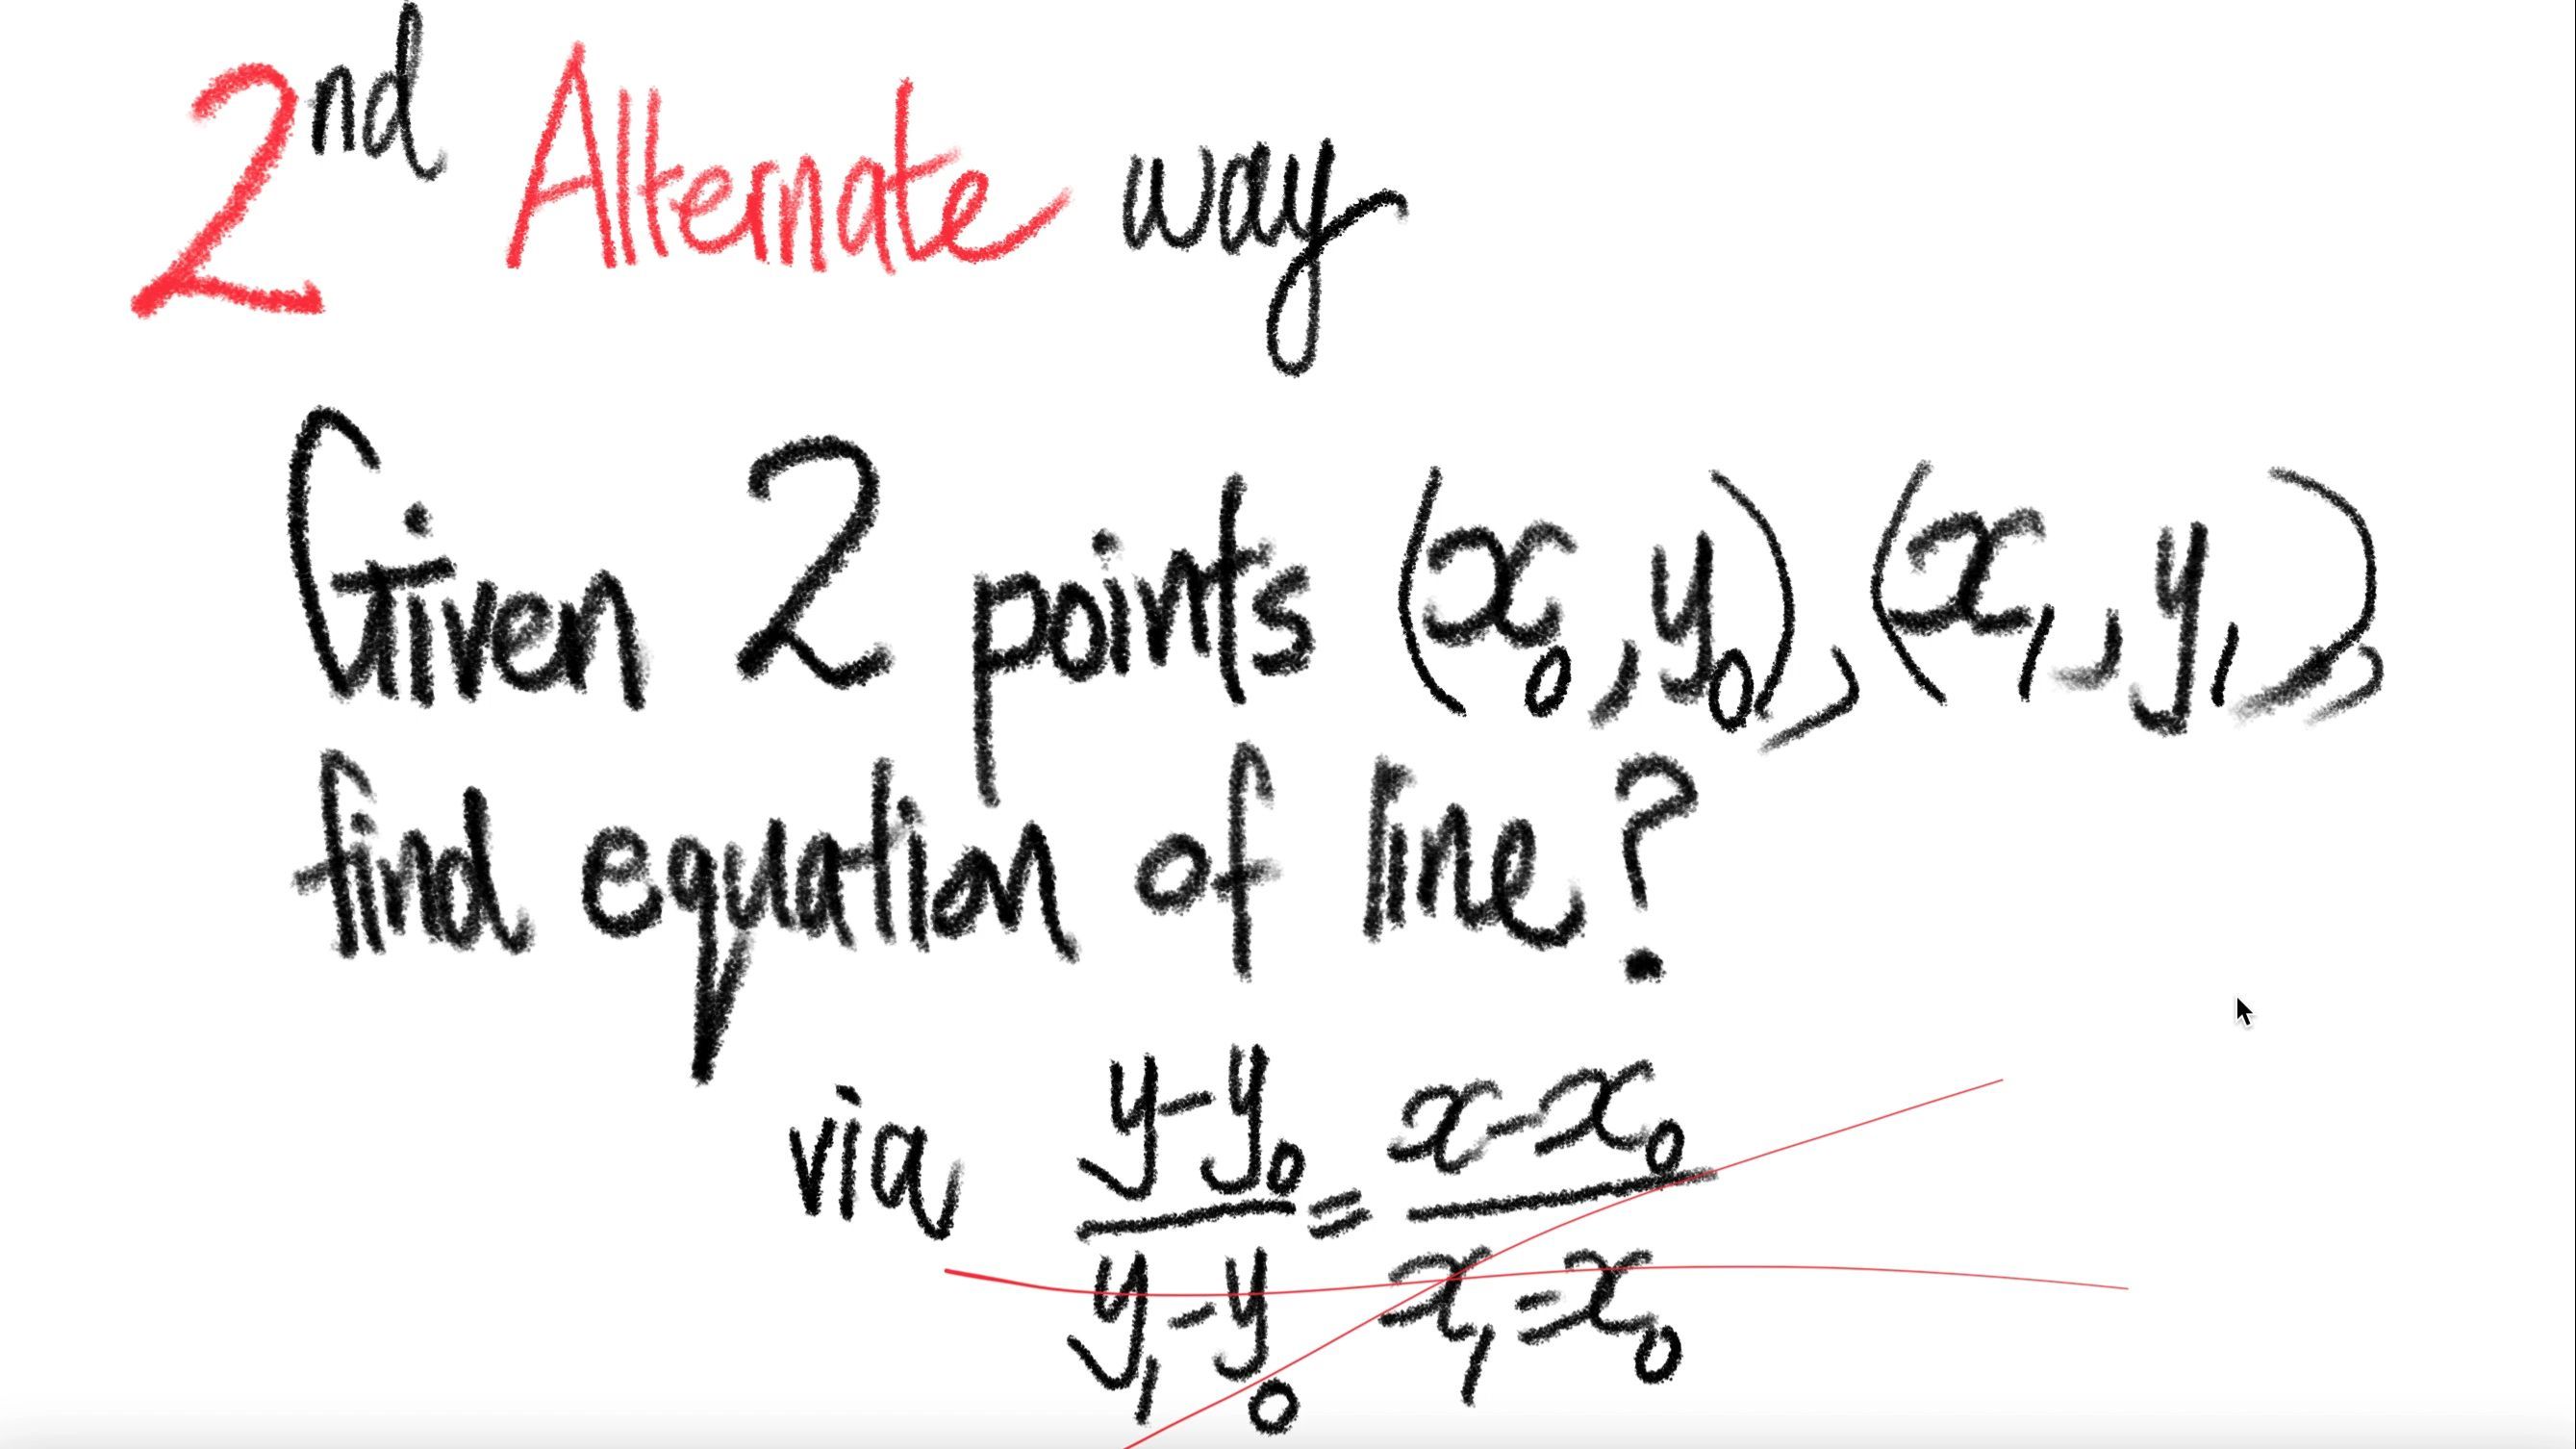 2nd Alternate way
Given 2 points (x₀, y₀), (x₁, y₁),
find equation of line?
via (y-y₀)/(y₁-y₀) = (x-x₀)/(x₁-x₀)